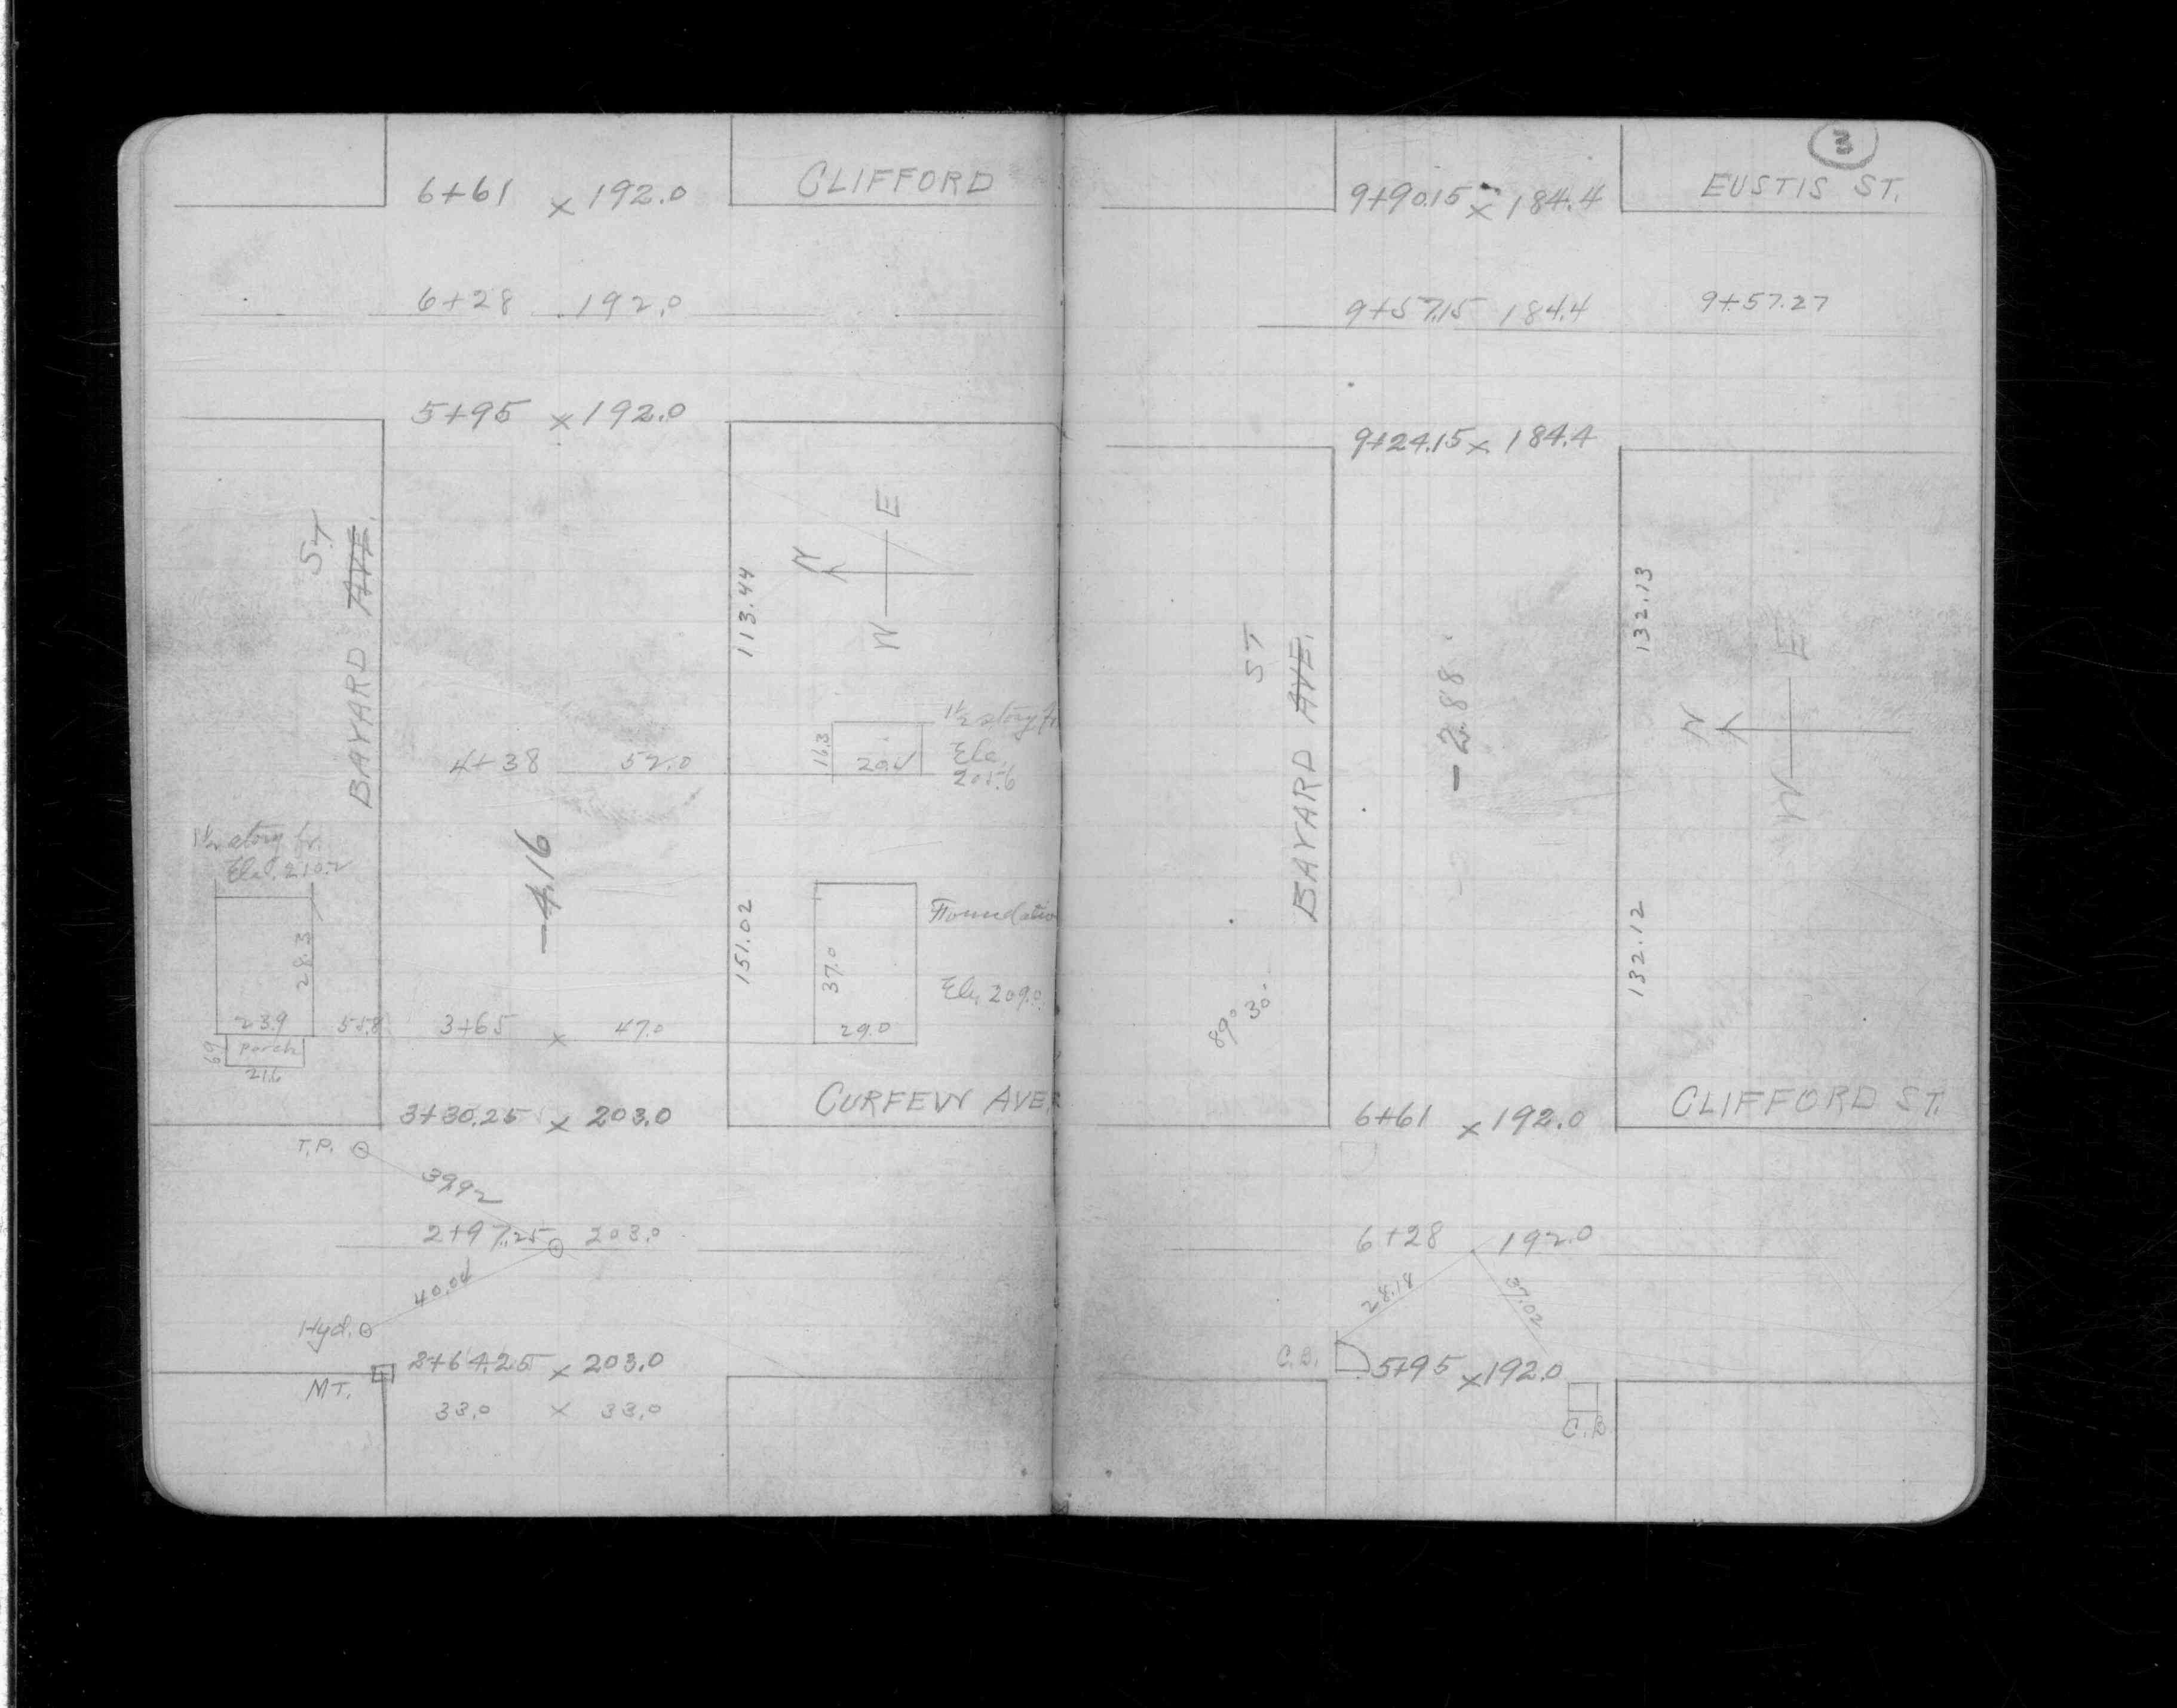 6+61 x 192.0 CLIFFORD
6+28 192.0
5+95 x 192.0
E
N
W
BAYARD AVE. ST
113.44
1½ story fr.
Ele.
205.6
16.3
4+38 52.0
1½ story fr.
Ele. 210.2
-4.16
151.02
Foundatio
Ele. 209.0
37.0
29.0
28.3
23.9 55.8 3+65 x 47.0
6.9 Porch
21.6
CURFEW AVE.
3+30.25 x 203.0
T.P.
39.92
2+97.25 203.0
40.04
Hyd.
2+64.25 x 203.0
MT.
33.0 x 33.0
3
9+90.15 x 184.4 EUSTIS ST.
9+57.15 184.4 9+57.27
9+24.15 x 184.4
BAYARD AVE. ST
-2.88
132.13
E
N
W
132.12
89° 30'
6+61 x 192.0 CLIFFORD ST.
6+28 192.0
28.18
37.02
C.B. 5+95 x 192.0
C.B.